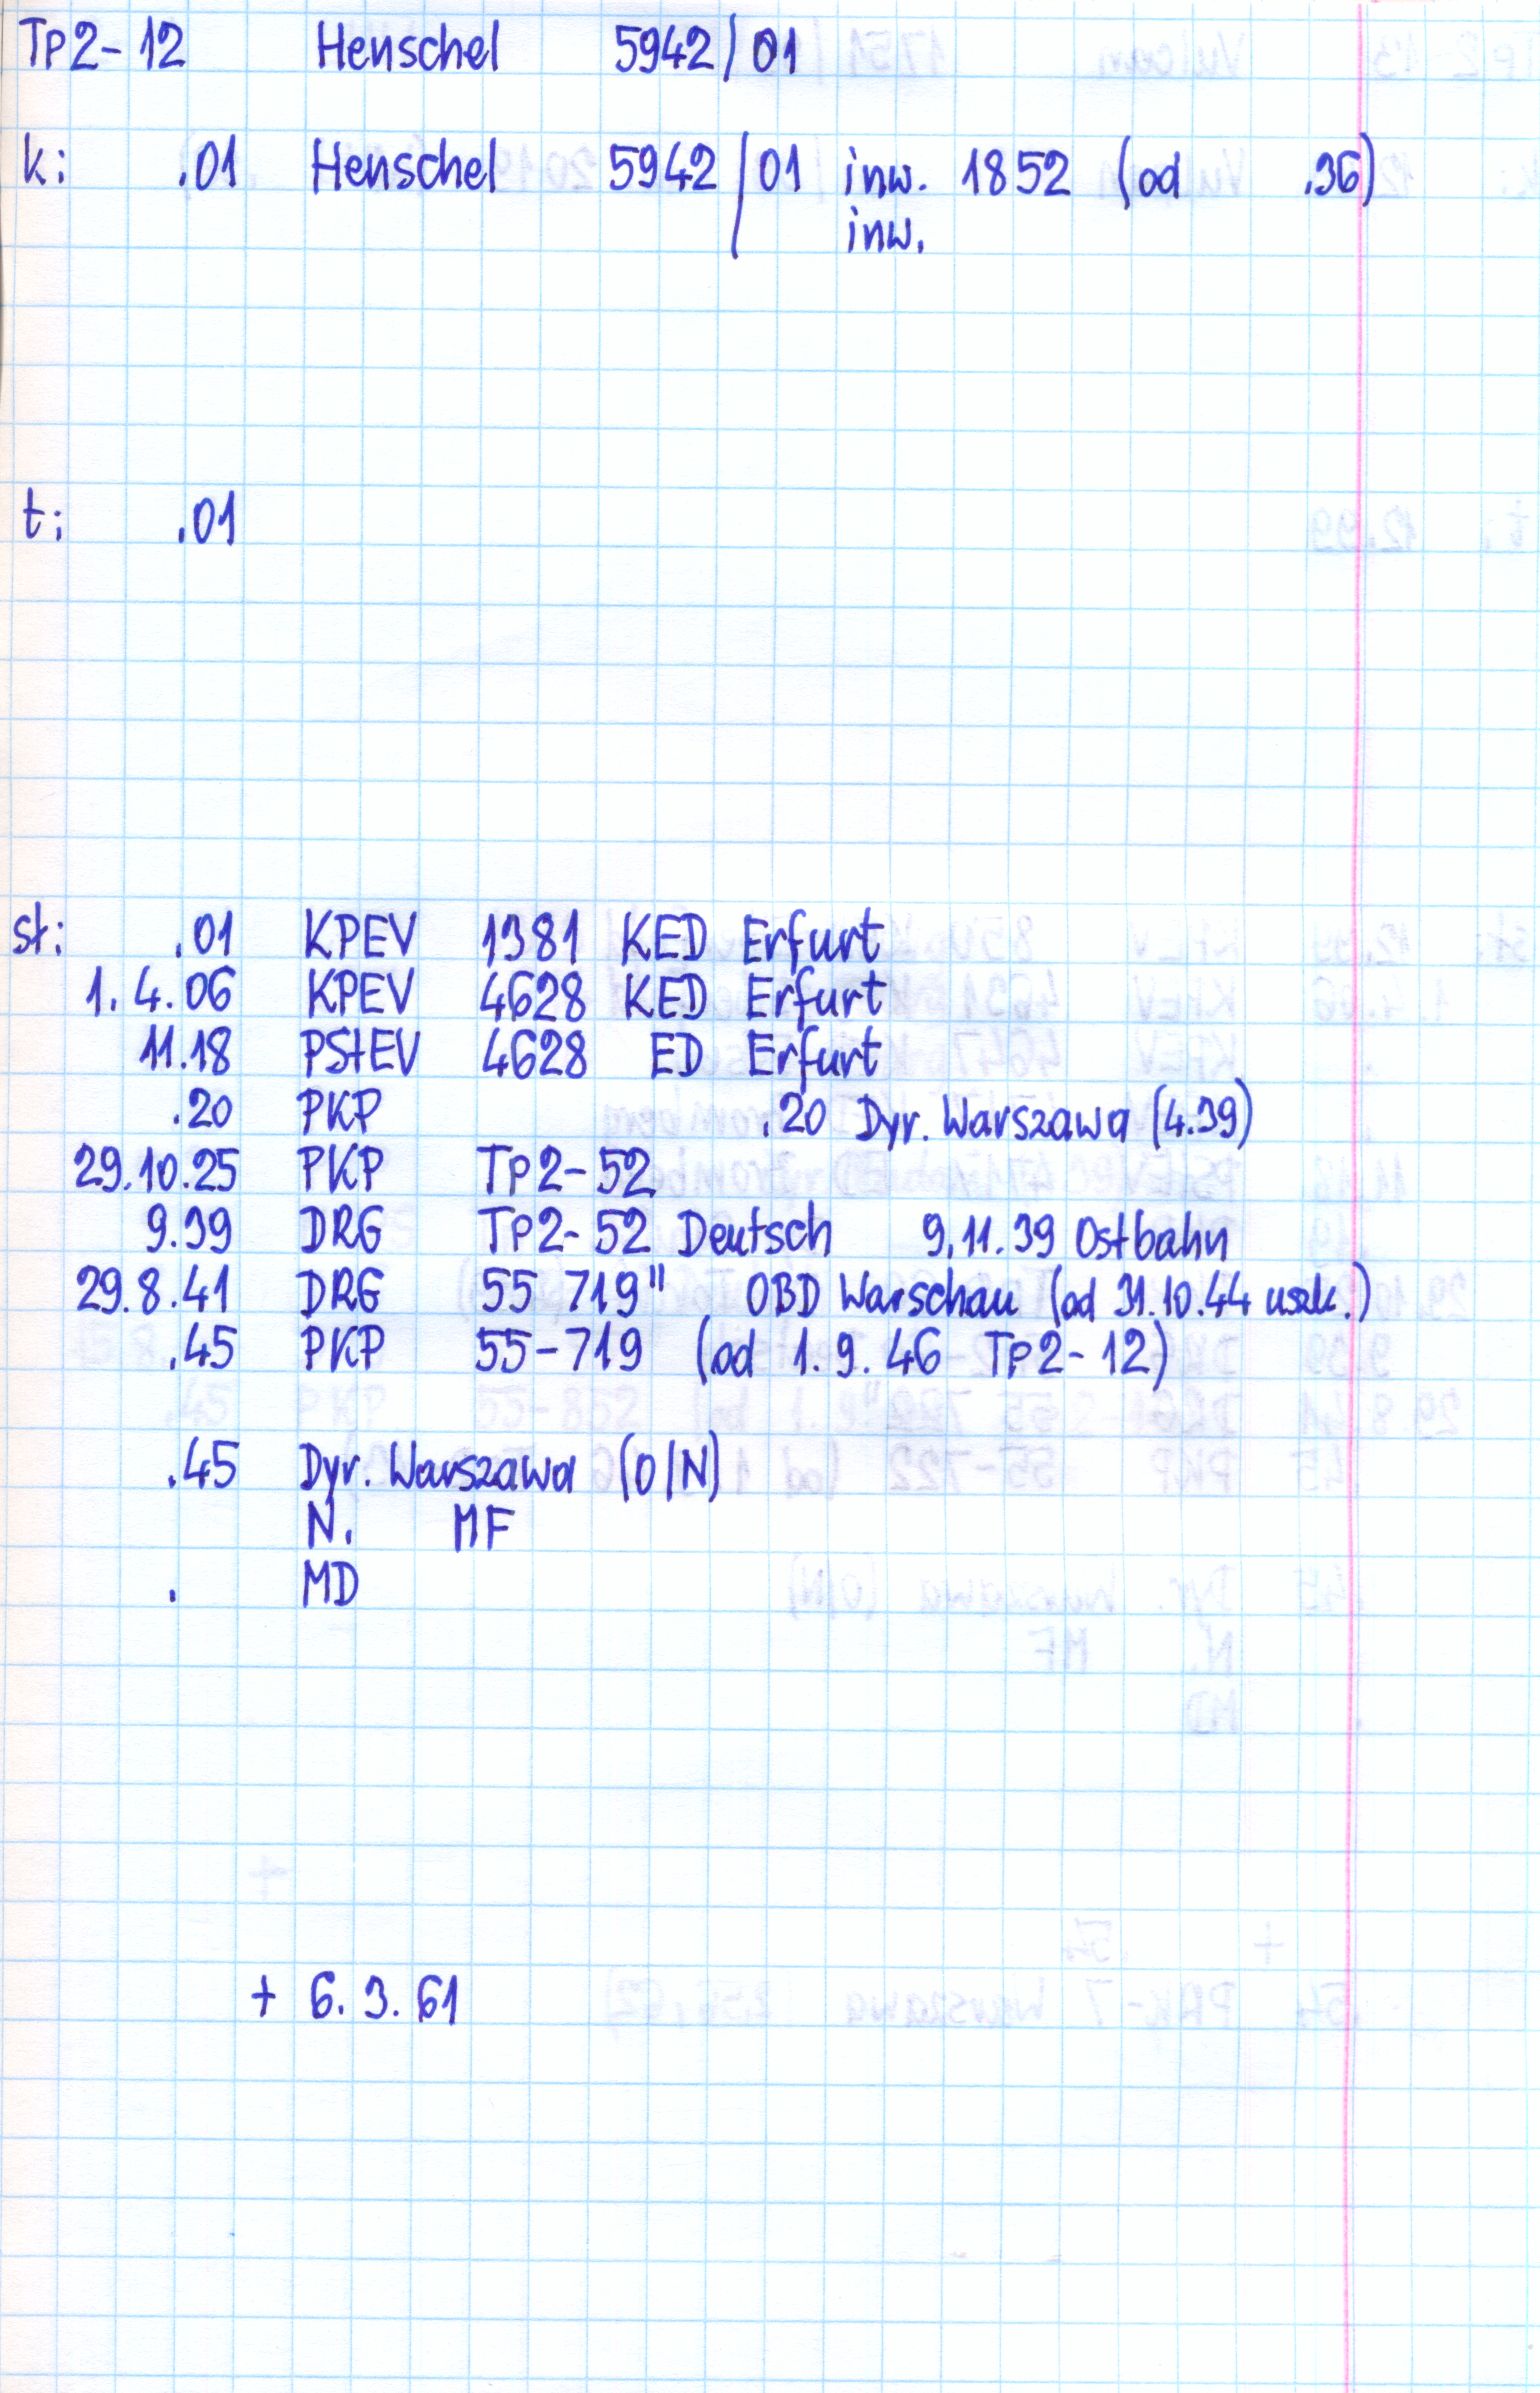 Tp2-12 Henschel 5942/01
k: .01 Henschel 5942/01 inw. 1852 (od .36)
inw.
t: .01
st: .01 KPEV 1381 KED Erfurt
1.4.06 KPEV 4628 KED Erfurt
11.18 PStEV 4628 ED Erfurt
.20 PKP .20 Dyr. Warszawa (4.39)
29.10.25 PKP Tp2-52
9.39 DRG Tp2-52 Deutsch 9.11.39 Ostbahn
29.8.41 DRG 55 719" OBD Warschau (od 31.10.44 uszk.)
.45 PKP 55-719 (od 1.9.46 Tp2-12)
.45 Dyr. Warszawa (O/N)
N. MF
. MD
+ 6.3.61